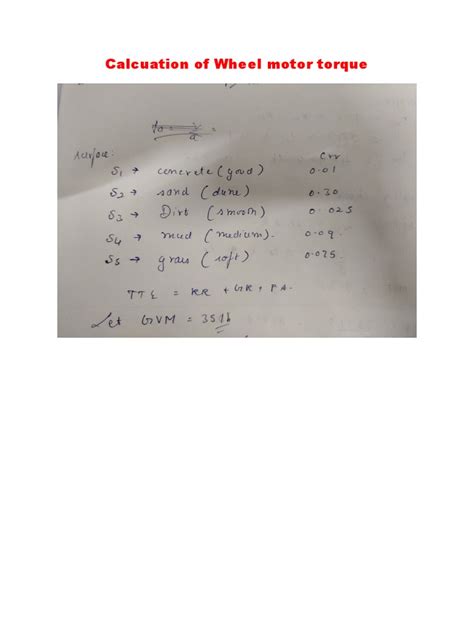 Calcuation of Wheel motor torque
surface: Crr
S1 → concrete (good) 0.01
S2 → sand (dune) 0.30
S3 → Dirt (smooth) 0.025
S4 → mud (medium). 0.09
S5 → grass (soft)
= RR + GR + FA.
Let GVM = 35 lb